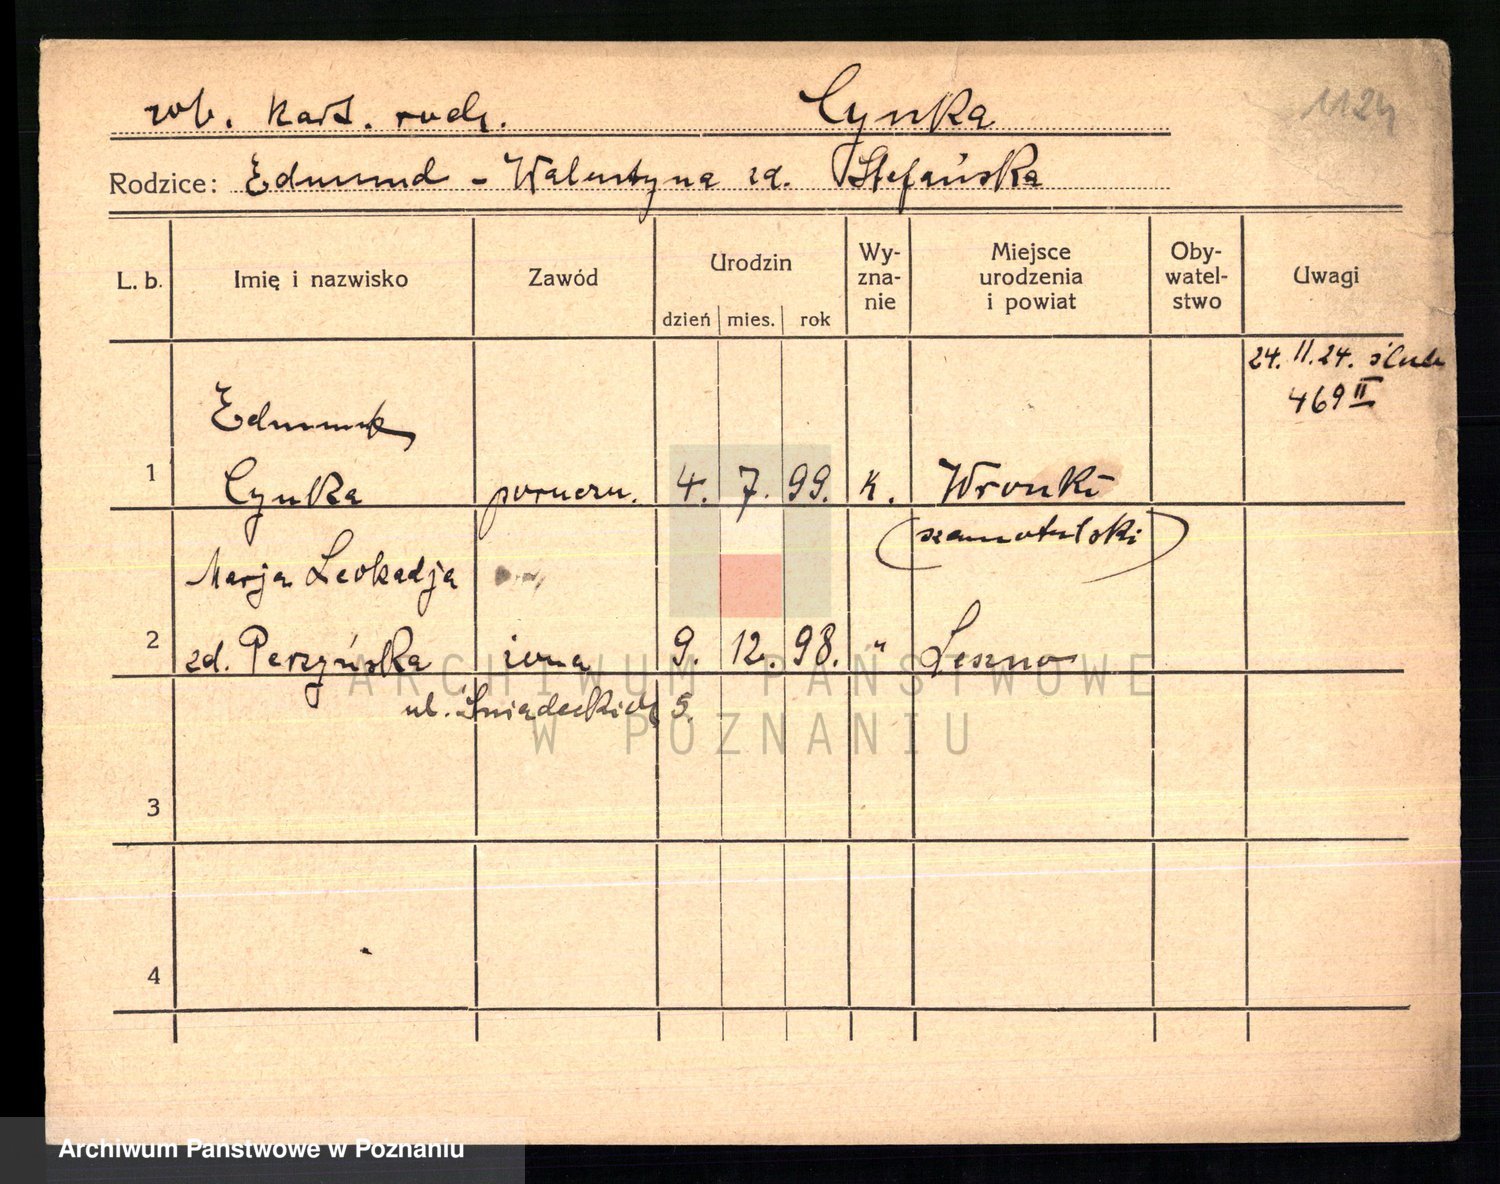 zob. kart. rodz. Cynka
1124
Rodzice: Edmund - Walentyna zd. Stefańska
L. b.
Imię i nazwisko
Zawód
Urodzin
dzień mies. rok
Wy-
zna-
nie
Miejsce
urodzenia
i powiat
Oby-
watel-
stwo
Uwagi
24. II. 24. ślub
469 II
Edmund
1 Cynka poruczn. 4. 7. 99. k. Wronki
(szamotulski)
Marja Leokadja
2 zd. Perzyńska żona 9. 12. 98. " Leszno
ul. Śniadeckich 5.
3
4
ARCHIWUM PAŃSTWOWE
W POZNANIU
Archiwum Państwowe w Poznaniu